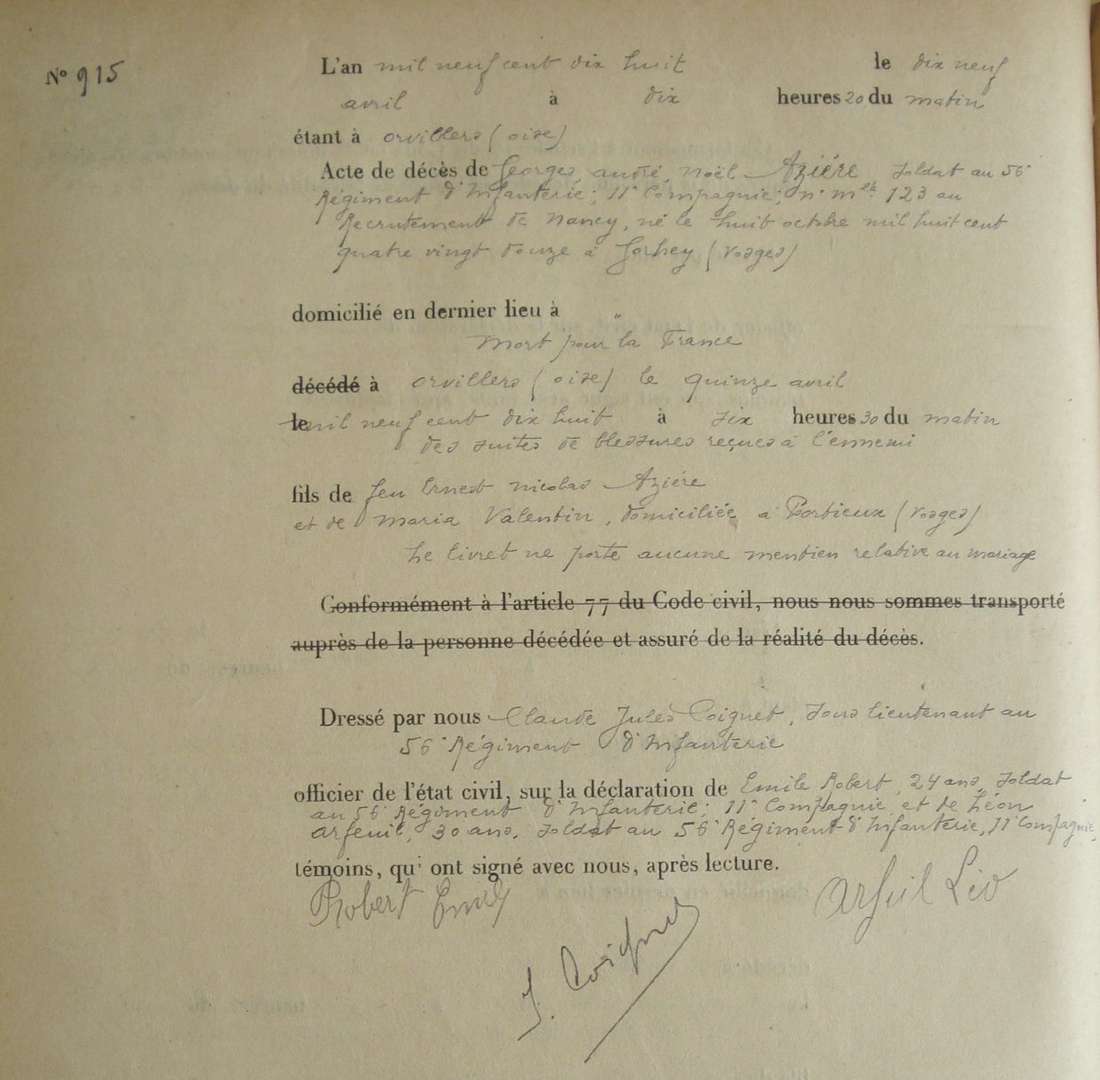 N° 915
L'an mil neuf cent dix huit le dix neuf
avril à dix heures 20 du matin
étant à orvillers (oise)
Acte de décès de Georges, andré, noël Aziére, soldat au 56e
Régiment d'Infanterie; 11e Compagnie; n° mle 123 au
Recrutement de nancy, né le huit octobre mil huit cent
quatre vingt douze à Gorhey (vosges)
domicilié en dernier lieu à "
mort pour la France
décédé à orvillers (oise) le quinze avril
le mil neuf cent dix huit à six heures 30 du matin
des suites de blessures reçues à l'ennemi
fils de feu Ernest nicolas Aziére
et de maria Valentin, domiciliée à Portieux (vosges)
Le livret ne porte aucune mention relative au mariage
Conformément à l'article 77 du Code civil, nous nous sommes transporté
auprès de la personne décédée et assuré de la réalité du décès.
Dressé par nous Claude Jules Coignet, sous lieutenant au
56e Régiment d'Infanterie
officier de l'état civil, sur la déclaration de Emile Robert, 24 ans, soldat
au 56e Régiment d'Infanterie; 11e Compagnie et de Léon
arfeuil, 30 ans, soldat au 56e Régiment d'Infanterie, 11e Compagnie,
témoins, qui ont signé avec nous, après lecture.
Robert Emile arfeuil Léo
J. Coignet